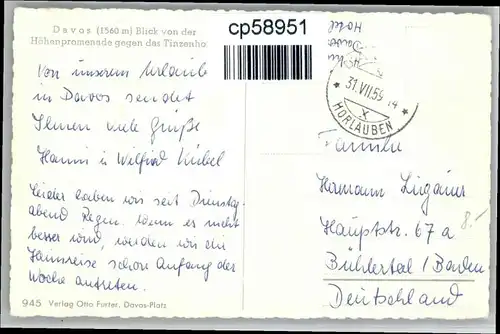 Davos (1560 m) Blick von der
Höhenpromenade gegen das Tinzenho
cp58951
Hotel
Davos
31.VII.59 14
HORLAUBEN
Von unserem Urlaub
in Davos sendet
Ihnen viele Grüße
Hanni u Wilfried Kübel
Leider haben wir seit Dienstag-
abend Regen. Wenn es nicht
besser wird, werden wir die
Heimreise schon Anfang der
Woche antreten.
945 Verlag Otto Furter, Davos-Platz
Familie
Hermann
Hauptstr. 67 a
8.-
Bühlertal / Baden
Deutschland